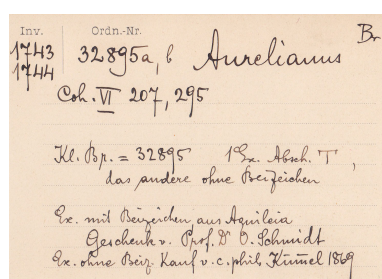 Inv. Ordn.-Nr. Br
1743 32895a, b Aurelianus
1744
Coh. VI 207, 295
Kl. Br. = 32895 1 Ex. Absch. T,
das andere ohne Beizeichen
Ex. mit Beizeichen aus Aquileia
Geschenk v. Prof. Dr O. Schmidt
Ex. ohne Beiz. Kauf v. c. phil. Kümel 1869